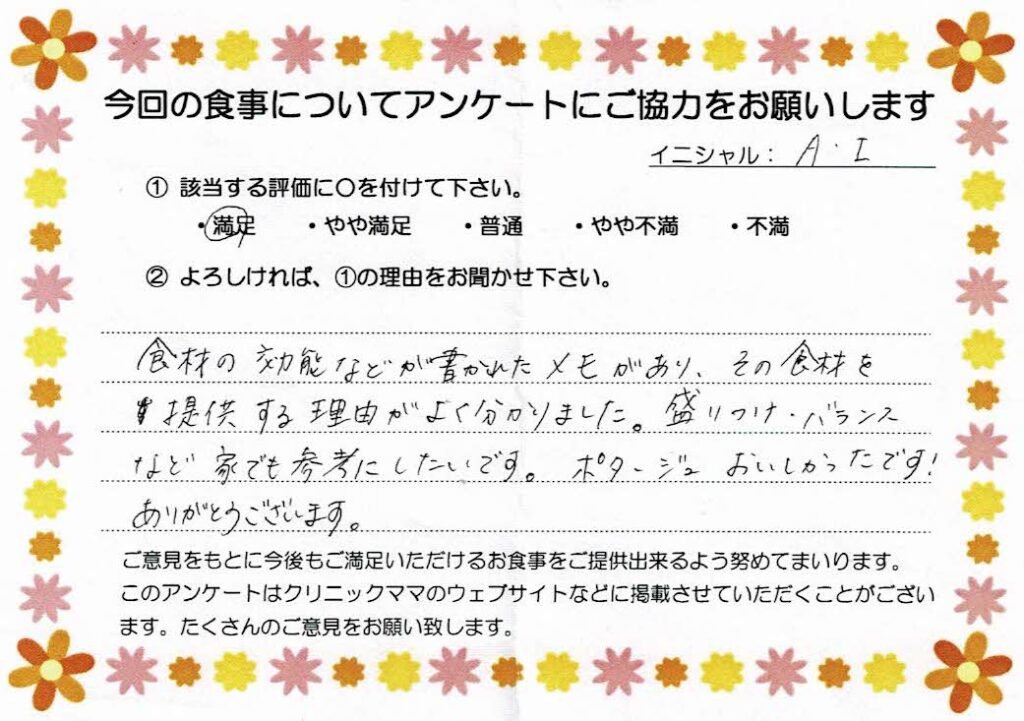 今回の食事についてアンケートにご協力をお願いします
イニシャル： A・I
① 該当する評価に〇を付けて下さい。
・満足 ・やや満足 ・普通 ・やや不満 ・不満
② よろしければ、①の理由をお聞かせ下さい。
食材の効能などが書かれたメモがあり、その食材を
提供する理由がよく分かりました。盛りつけ・バランス
など家でも参考にしたいです。ポタージュおいしかったです!
ありがとうございます。
ご意見をもとに今後もご満足いただけるお食事をご提供出来るよう努めてまいります。
このアンケートはクリニックママのウェブサイトなどに掲載させていただくことがござい
ます。たくさんのご意見をお願い致します。